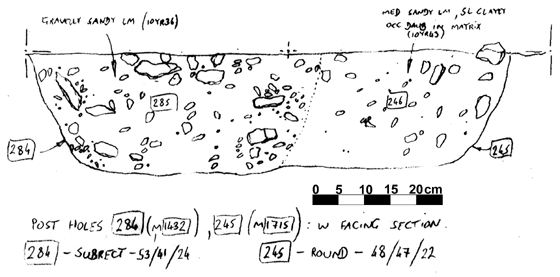 GRAVELLY SANDY LM (10YR36)
MED SANDY LM, SL CLAYEY
OCC DAUB IN MATRIX
(10YR43)
285
246
284
245
0 5 10 15 20cm
POST HOLES 284 (M1432), 245 (M1715): W FACING SECTION.
284 - SUBRECT - 53/41/24
245 - ROUND - 48/47/22